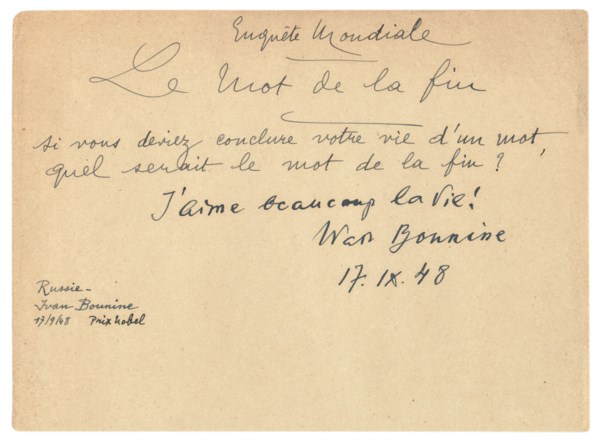 Enquête Mondiale
Le Mot de la fin
si vous deviez conclure votre vie d'un mot,
quel serait le mot de la fin ?
J'aime beaucoup la vie!
Ivan Bounine
17.IX.48
Russie –
Ivan Bounine
17/9/48 Prix Nobel